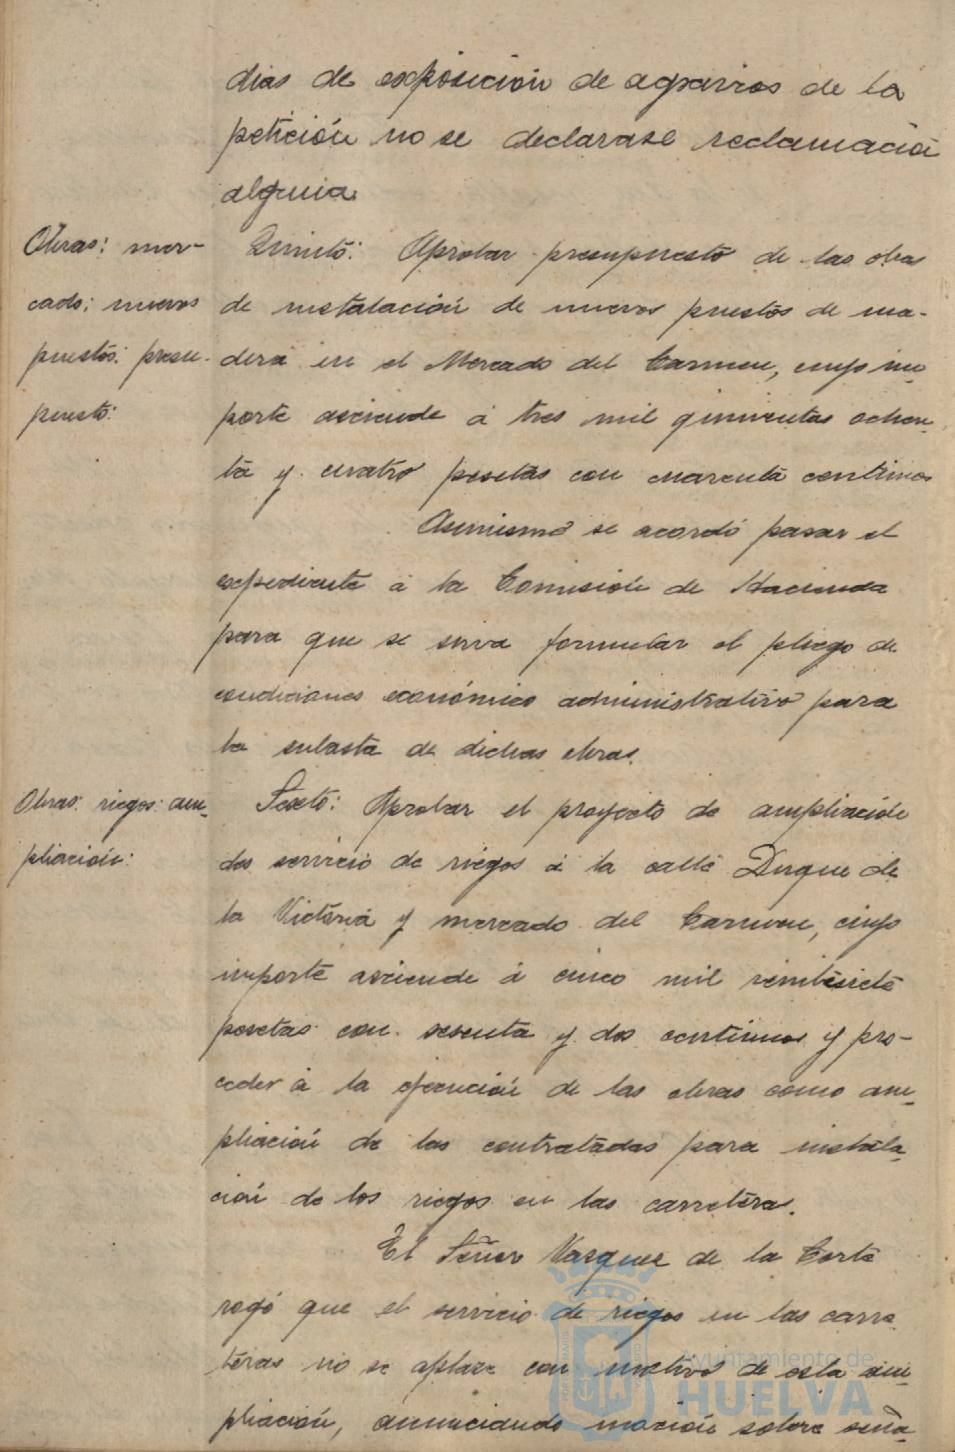 dias de exposición de agravios de la
petición no se declarase reclamación
alguna.
Obras: mer-
cado: nuevos
puestos: presu-
puesto:
Quinto: Aprobar presupuesto de las obras
de instalación de nuevos puestos de ma-
dera en el Mercado del Carmen, cuyo im-
porte asciende á tres mil quinientas ochen-
ta y cuatro pesetas con cuarenta centimos
Asimismo se acordó pasar el
expediente á la Comisión de Hacienda
para que se sirva formular el pliego de
condiciones económico administrativo para
la subasta de dichas obras.
Obras: riegos: am-
pliación:
Sexto: Aprobar el proyecto de ampliación
del servicio de riegos á la calle Duque de
la Victoria y mercado del Carmen, cuyo
importe asciende á cinco mil veintisiete
pesetas con sesenta y dos centimos y pro-
ceder á la ejecución de las obras como am-
pliación de las contratadas para instala-
ción de los riegos en las carreteras.
El Señor Vazquez de la Corte
rogó que el servicio de riegos en las carre-
teras no se aplaze con motivo de esta am-
pliación, anunciando moción sobre seña-
Ayuntamiento de
HUELVA